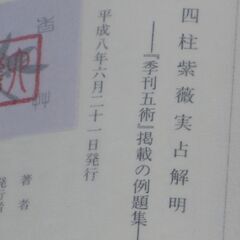 四柱紫薇実占解明
―『季刊五術』掲載の例題集―
平成八年六月二十一日発行
著者
発行者